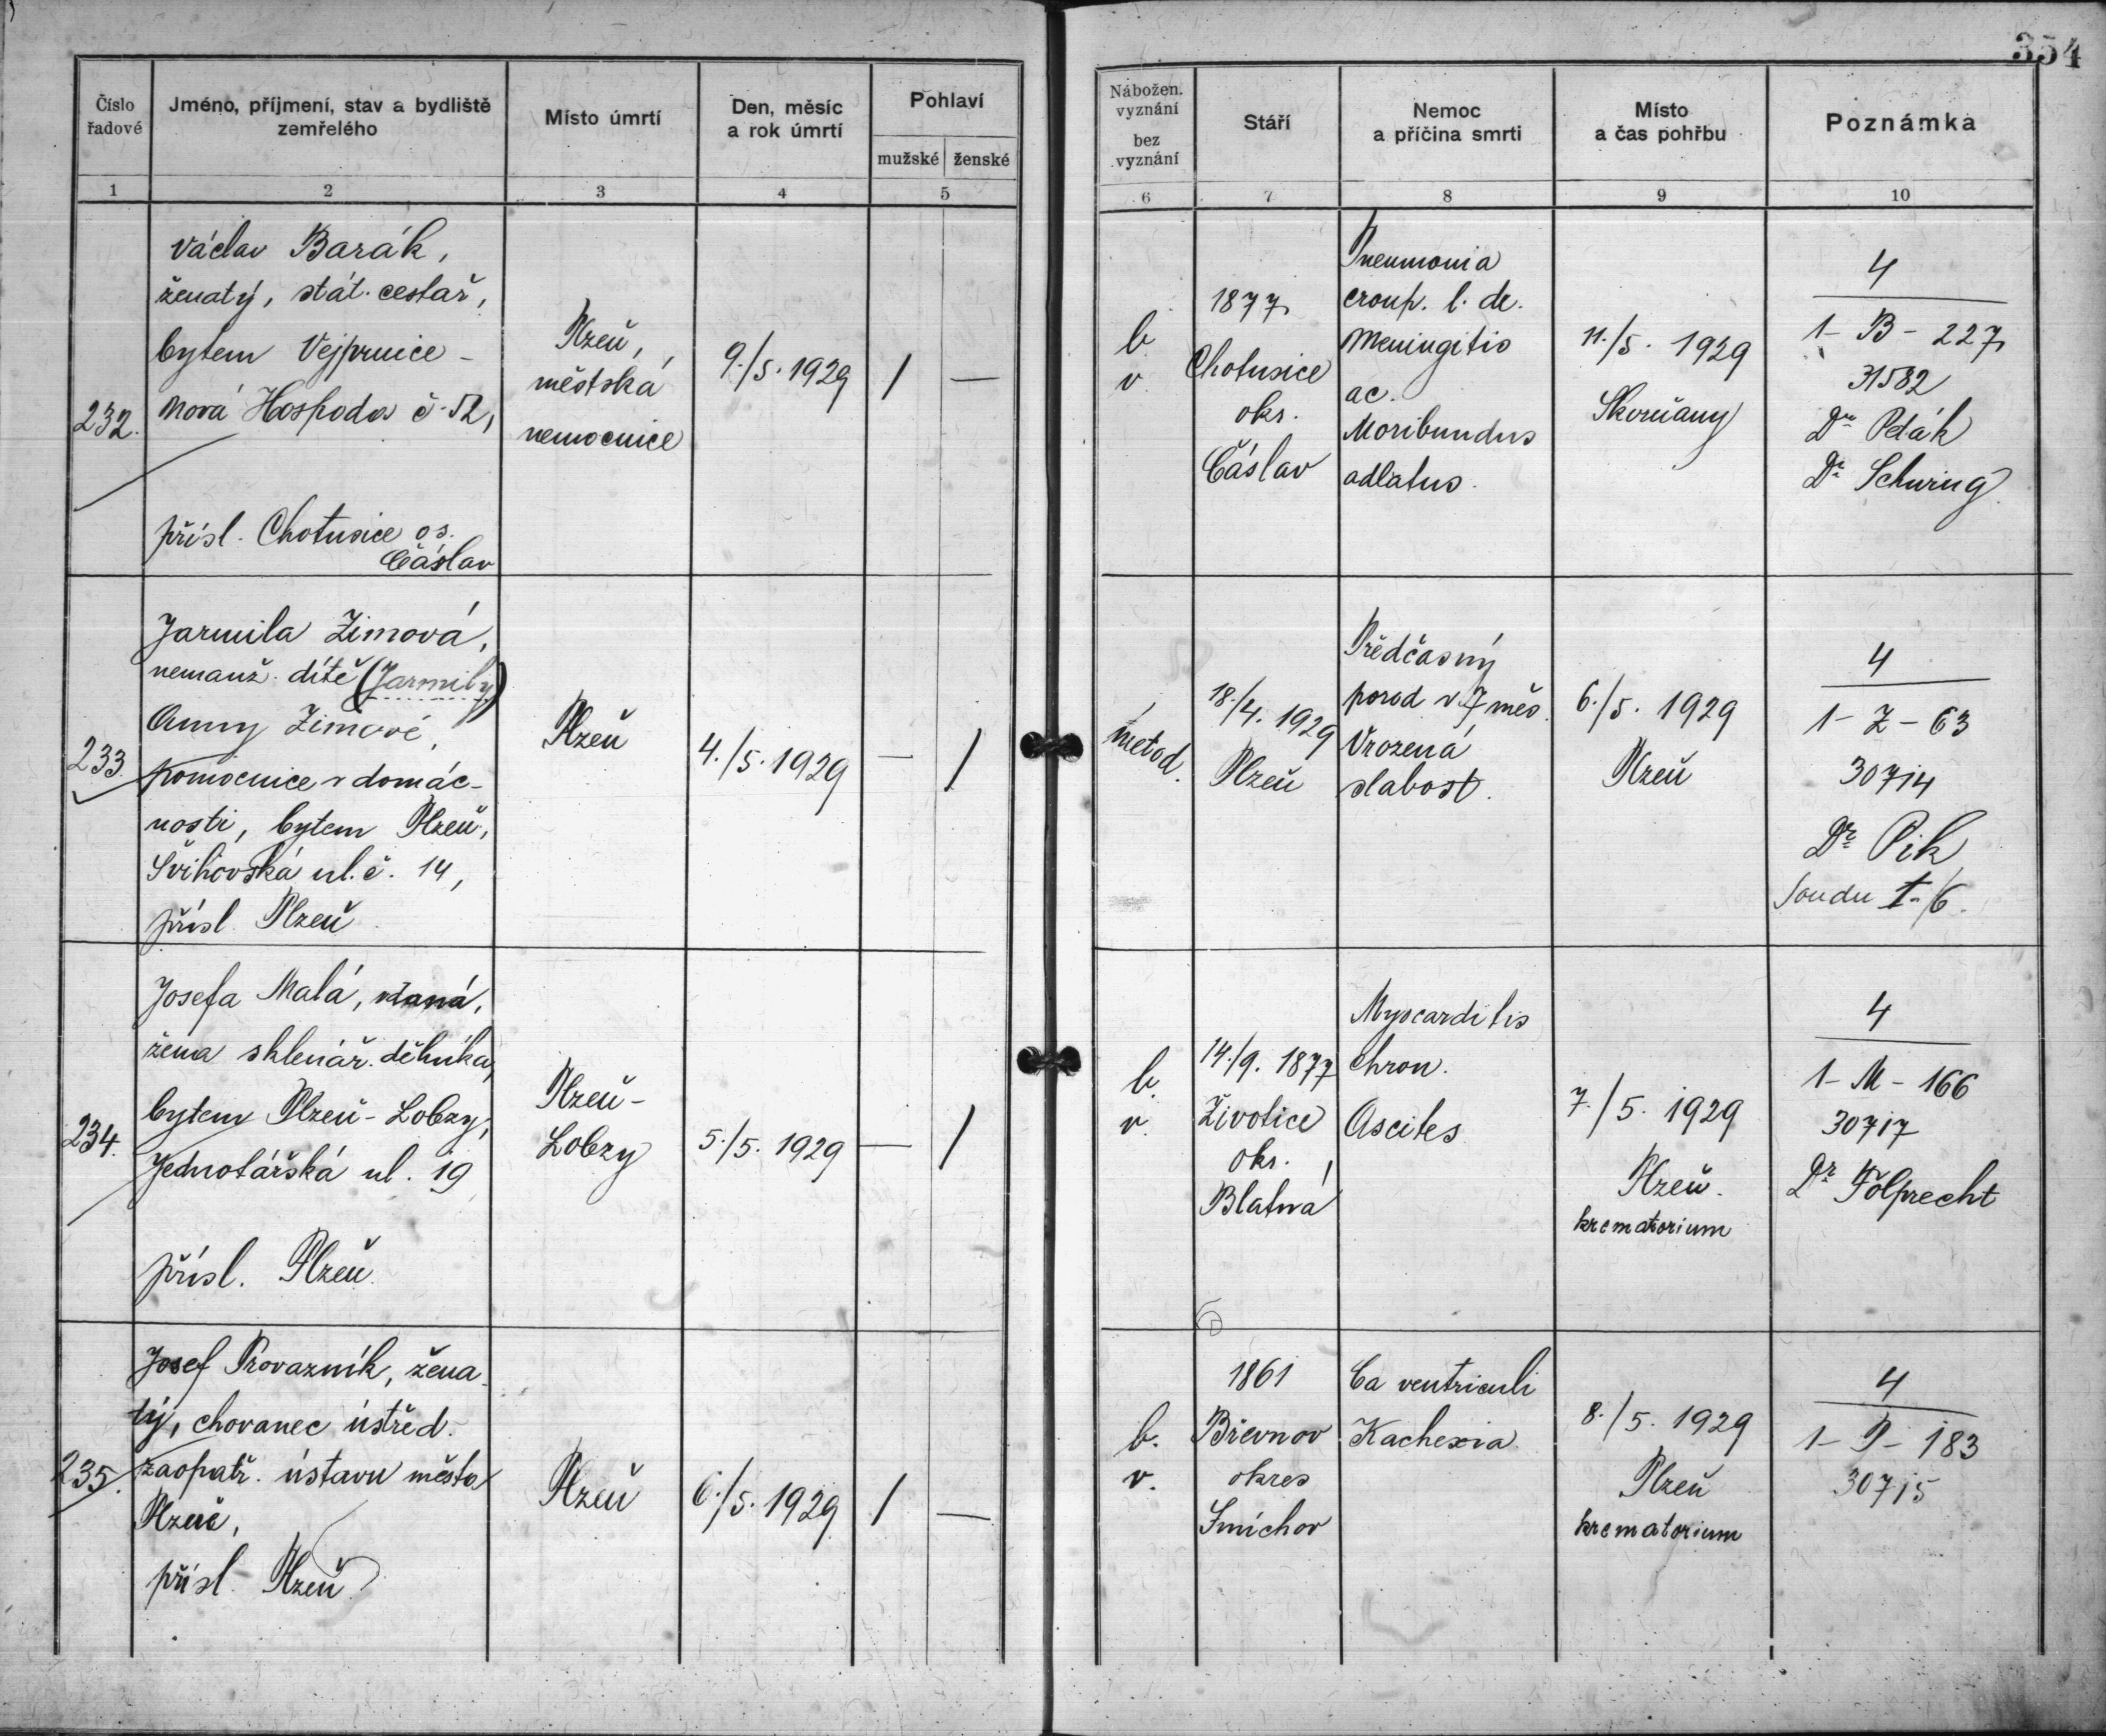 354
Číslo řadové
Jméno, příjmení, stav a bydliště
zemřelého
Místo úmrtí
Den, měsíc
a rok úmrtí
Pohlaví
mužské ženské
Nábožen.
vyznání
bez
vyznání
Stáří
Nemoc
a příčina smrti
Místo
a čas pohřbu
Poznámka
1 2 3 4 5 6 7 8 9 10
232.
Václav Barák,
ženatý, stát. cestař,
bytem Vejprnice -
Nová Hospoda č. 52,
přísl. Chotusice os.
Čáslav
Plzeň,
městská
nemocnice
9./5. 1929
/ —
b.
v.
1877
Chotusice
okr.
Čáslav
Pneumonia
croup. l. de.
Meningitis
ac.
Moribundus
adlatus.
11./5. 1929
Skvrňany
4
1 - B - 227
31582
Dr Peták
Dr Schwing
233.
Jarmila Zimová,
nemanž. dítě (Jarmily)
Anny Zimové,
pomocnice v domác-
nosti, bytem Plzeň,
Švihovská ul. č. 14,
přísl. Plzeň
Plzeň
4./5. 1929
— /
metod.
18./4. 1929
Plzeň
Předčasný
porod v 7 měs.
Vrozená
slabost.
6./5. 1929
Plzeň
4
1 - Z - 63
30714
Dr Pik
Soudu I-/6.
234.
Josefa Malá, vdaná,
žena sklenář. dělníka,
bytem Plzeň - Lobzy,
Jednotářská ul. 19
přísl. Plzeň.
Plzeň -
Lobzy
5./5. 1929
— /
b.
v.
14./9. 1877
Životice
okr.
Blatná
Myocarditis
chron.
Ascites
7./5. 1929
Plzeň.
krematorium
4
1 - M - 166
30717
Dr Fölprecht
235.
Josef Provazník, žena-
tý, chovanec ústřed.
zaopatř. ústavu města
Plzně,
přísl. Plzeň
Plzeň
6./5. 1929
/ —
b.
v.
1861
Břevnov
okres
Smíchov
Ca ventriculi
Kachexia.
8./5. 1929
Plzeň
krematorium
4
1 - P - 183
30715